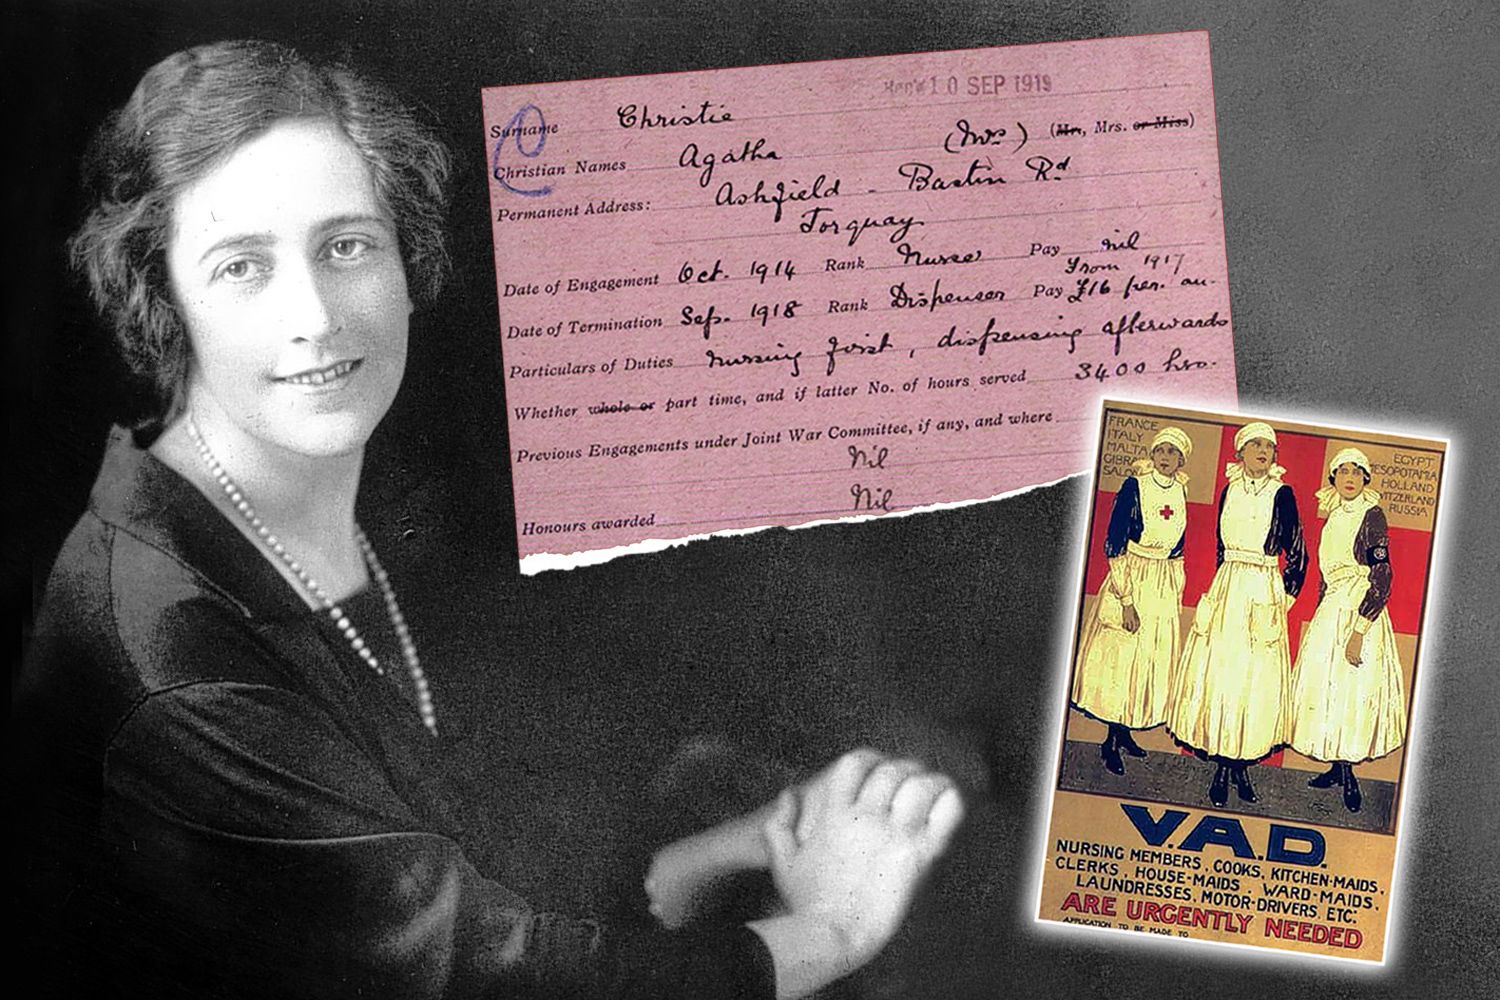 Rec'd 10 SEP 1919
Surname Christie
Christian Names Agatha (Mrs) (Mr, Mrs. or Miss)
Permanent Address: Ashfield - Barton Rd
Torquay
Date of Engagement Oct. 1914 Rank Nurse Pay nil
from 1917
Date of Termination Sep. 1918 Rank Dispenser Pay £16 per. an.
Particulars of Duties nursing first, dispensing afterwards
Whether whole or part time, and if latter No. of hours served 3400 hrs.
Previous Engagements under Joint War Committee, if any, and where
Nil
Honours awarded Nil
FRANCE
ITALY
MALTA
GIBRA
SALON
EGYPT
MESOPOTAMIA
HOLLAND
WITZERLAND
RUSSIA
V.A.D.
NURSING MEMBERS, COOKS, KITCHEN-MAIDS,
CLERKS, HOUSE-MAIDS, WARD-MAIDS,
LAUNDRESSES, MOTOR-DRIVERS, ETC.
ARE URGENTLY NEEDED
APPLICATION TO BE MADE TO